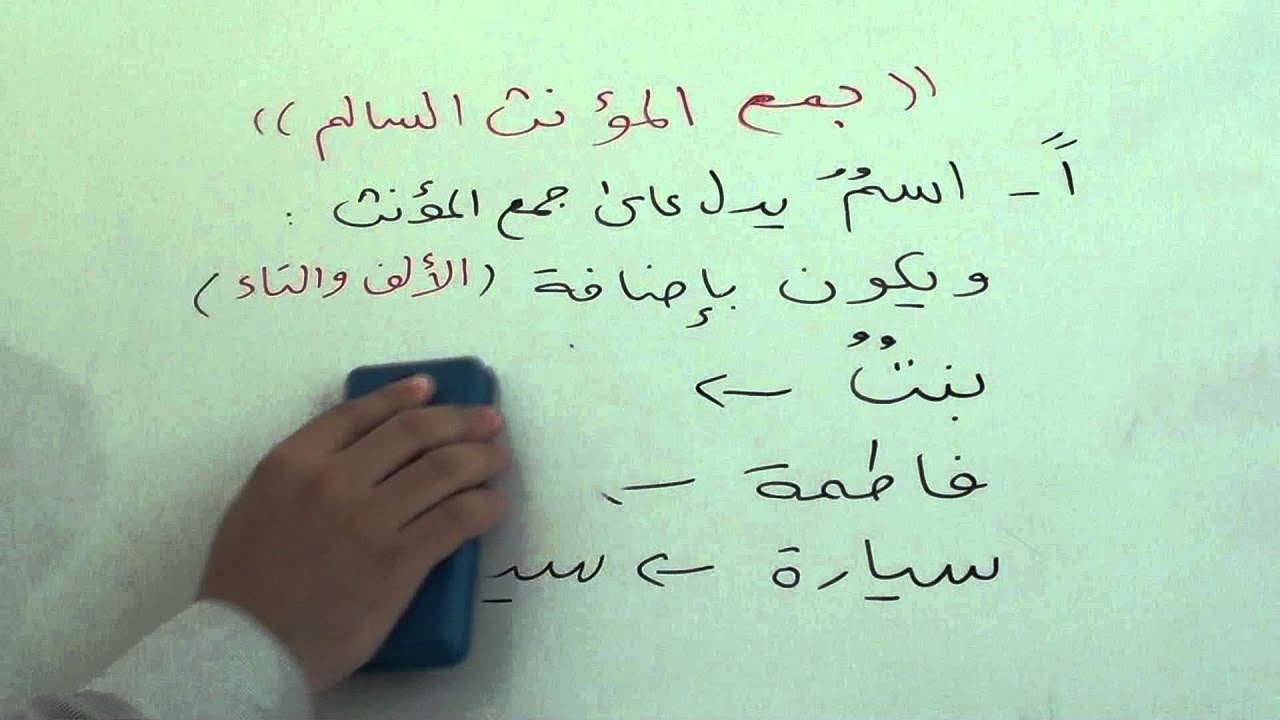 (( جمع المؤنث السالم ))
أً - اسمٌ يدل على جمع المؤنث :
ويكون بإضافة (الألف والتاء)
بنتٌ ←
فاطمة -
سيارة ← سيـ